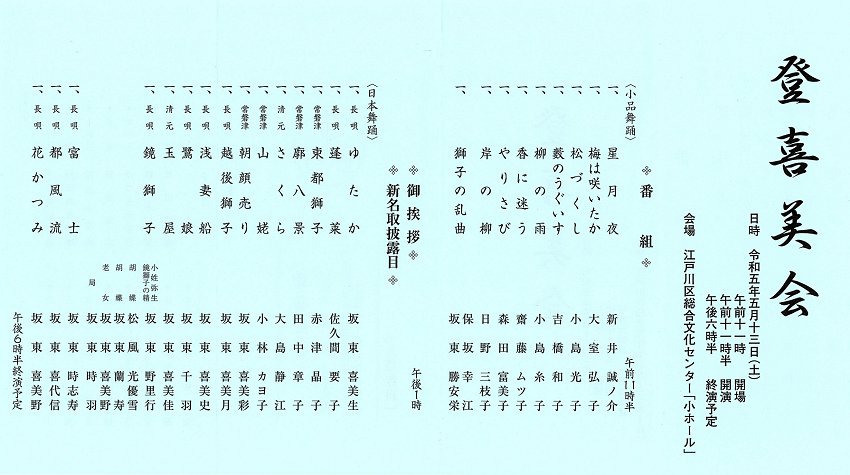 登喜美会
日時　令和五年五月十三日(土)
午前十一時　開場
午前十一時半　開演
午後六時半　終演予定
会場　江戸川区総合文化センター「小ホール」
番組
〈小品舞踊〉　午前11時半
一、星月夜　新井誠ノ介
一、梅は咲いたか　大室弘子
一、松づくし　小島光子
一、藪のうぐいす　吉橋和子
一、柳の雨　小島糸子
一、香に迷う　齋藤ムツ子
一、やりさび　森田富美子
一、岸の柳　日野三枝子
一、獅子の乱曲　保坂幸江
坂東勝安栄
御挨拶
新名取披露目
〈日本舞踊〉　午後1時
一、長唄　ゆたか　坂東喜美生
一、長唄　蓬莱　佐久間要子
一、常磐津　東都獅子　赤津晶子
一、常磐津　廓八景　田中章子
一、清元　さくら　大島静江
一、常磐津　山姥　小林カヨ子
一、常磐津　朝顔売り　坂東喜美彩
一、長唄　越後獅子　坂東喜美月
一、長唄　浅妻船　坂東喜美史
一、長唄　鷺娘　坂東千羽
一、清元　玉屋　坂東喜美佳
一、長唄　鏡獅子　小姓弥生　鏡獅子の精　坂東野里行
胡蝶　松風光優雪
胡蝶　坂東蘭寿
老女　坂東喜美野
局　坂東時羽
一、長唄　富士　坂東時志寿
一、長唄　都風流　坂東喜代信
一、長唄　花かつみ　坂東喜美野
午後6時半終演予定